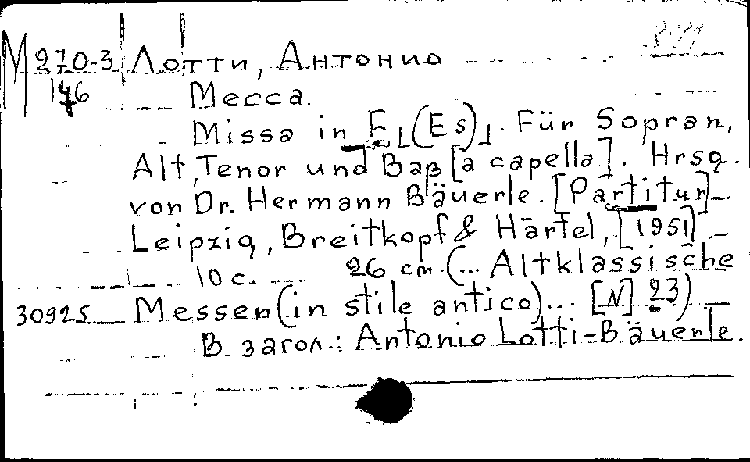 М 270-3 Лотти, Антонио
146 Месса.
Missa in E⌊(Es)⌋. Für Sopran,
Alt, Tenor und Baß [a capella]. Hrsg.
von Dr. Hermann Bäuerle. [Partitur]
Leipzig, Breitkopf & Härtel, [1951]
10 с. 26 cm. (... Altklassische
30925 Messen (in stile antico)... [N] 23)
В загол.: Antonio Lotti-Bäuerle.